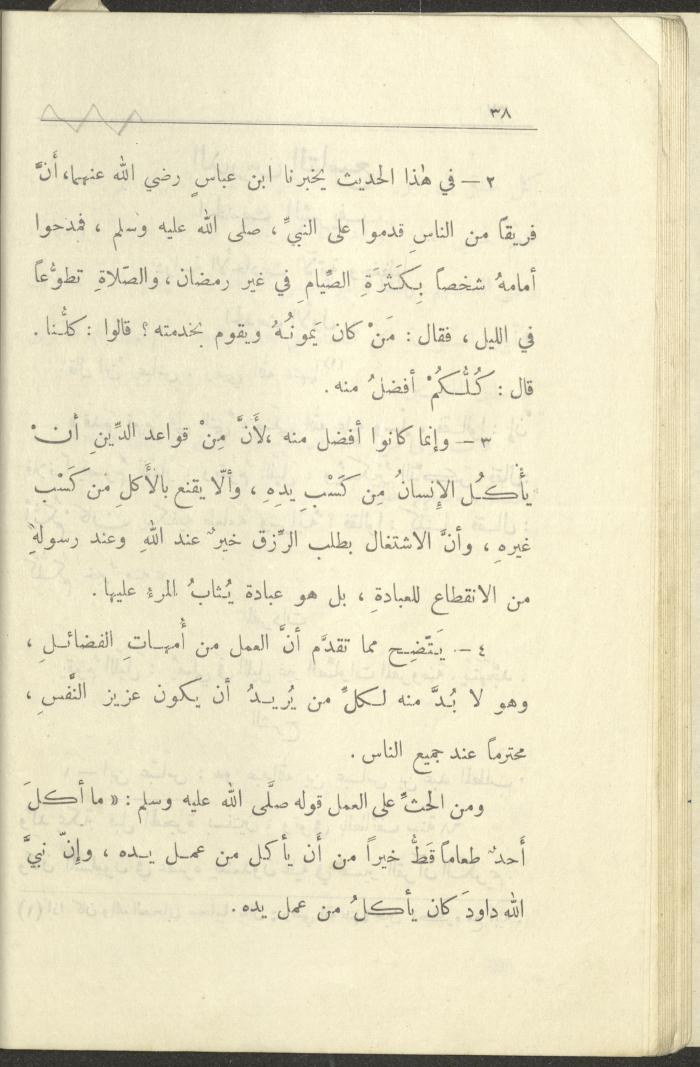 ٣٨
٢ – في هٰذا الحديث يخبرنا ابن عباسٍ رضي الله عنهما، أَنَّ
فريقاً من الناسِ قدموا على النبيِّ ، صلى الله عليه وسلم ، فمدحوا
أمامهُ شخصاً بِكَثرَةِ الصِّيامِ في غير رمضان ، والصَلاةِ تطوُّعاً
في الليل ، فقال : مَنْ كان يَمونُهُ ويقوم بخدمته ؟ قالوا : كلُّنا .
قال : كُلُّكُمْ أفضلُ منه .
٣ – وإنما كانوا أفضل منه ، لَأَنَّ مِنْ قواعد الدِّينِ أنْ
يأْكُل الإِنسانُ مِن كَسْبِ يدِهِ ، وألّا يقنع بالأَكلِ مَن كَسْب
غيرهِ ، وأنَّ الاشتغال بطلب الرِّزق خيرٌ عند اللهِ وعند رسولهِ
من الانقطاع للعبادةِ ، بل هو عبادة يُثابُ المرءُ عليها .
٤ – يَتّضِح مما تقدَّم أنَّ العمل من أُمهاتِ الفضائلِ ،
وهو لا بُدَّ منه لكلِّ من يُريدُ أن يكون عزيز النَّفسِ ،
محترماً عند جميع الناس .
ومن الحثِّ على العمل قوله صلَّى الله عليه وسلم : « ما أكلَ
أَحدٌ طعاماً قَطُّ خيراً من أَن يأكل من عمل يده ، وإنّ نبيَّ
الله داودَ كان يأكلُ من عمل يده .